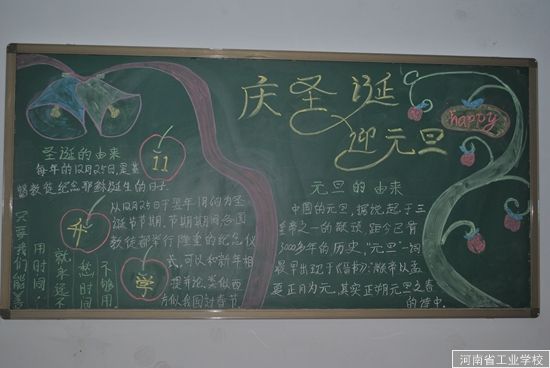 庆圣诞
迎元旦
happy
圣诞的由来
每年的12月25日,是基
督教徒纪念耶稣诞生的日子.
从12月25日于翌年1月6日为圣
诞节节期。节期期间各国
教徒都举行隆重的纪念仪
长,可以和新年相
提并论,类似西
方似我国过春节
11
升
学
只要我们能善
用时间,
就永远不
愁时间
不够用
元旦的由来
中国的元旦,据说起于三
皇帝之一的颛顼,距今已有
3000多年的历史,"元旦"一词
最早出现于《晋书》:"颛帝以孟
夏正月为元,其实正朔元旦之春"
的诗中.
河南省工业学校